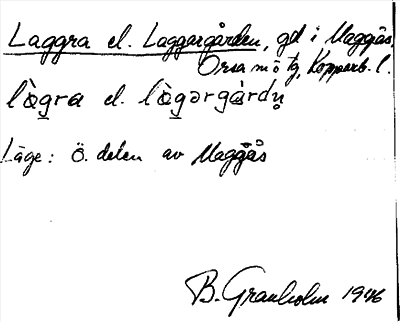 Laggra el. Laggargården, gd i Maggås,
Orsa sn o tg, Kopparb. l.
làgra el. làgərgàrdn̥
Läge: Ö. delen av Maggås
B. Granholm 1946